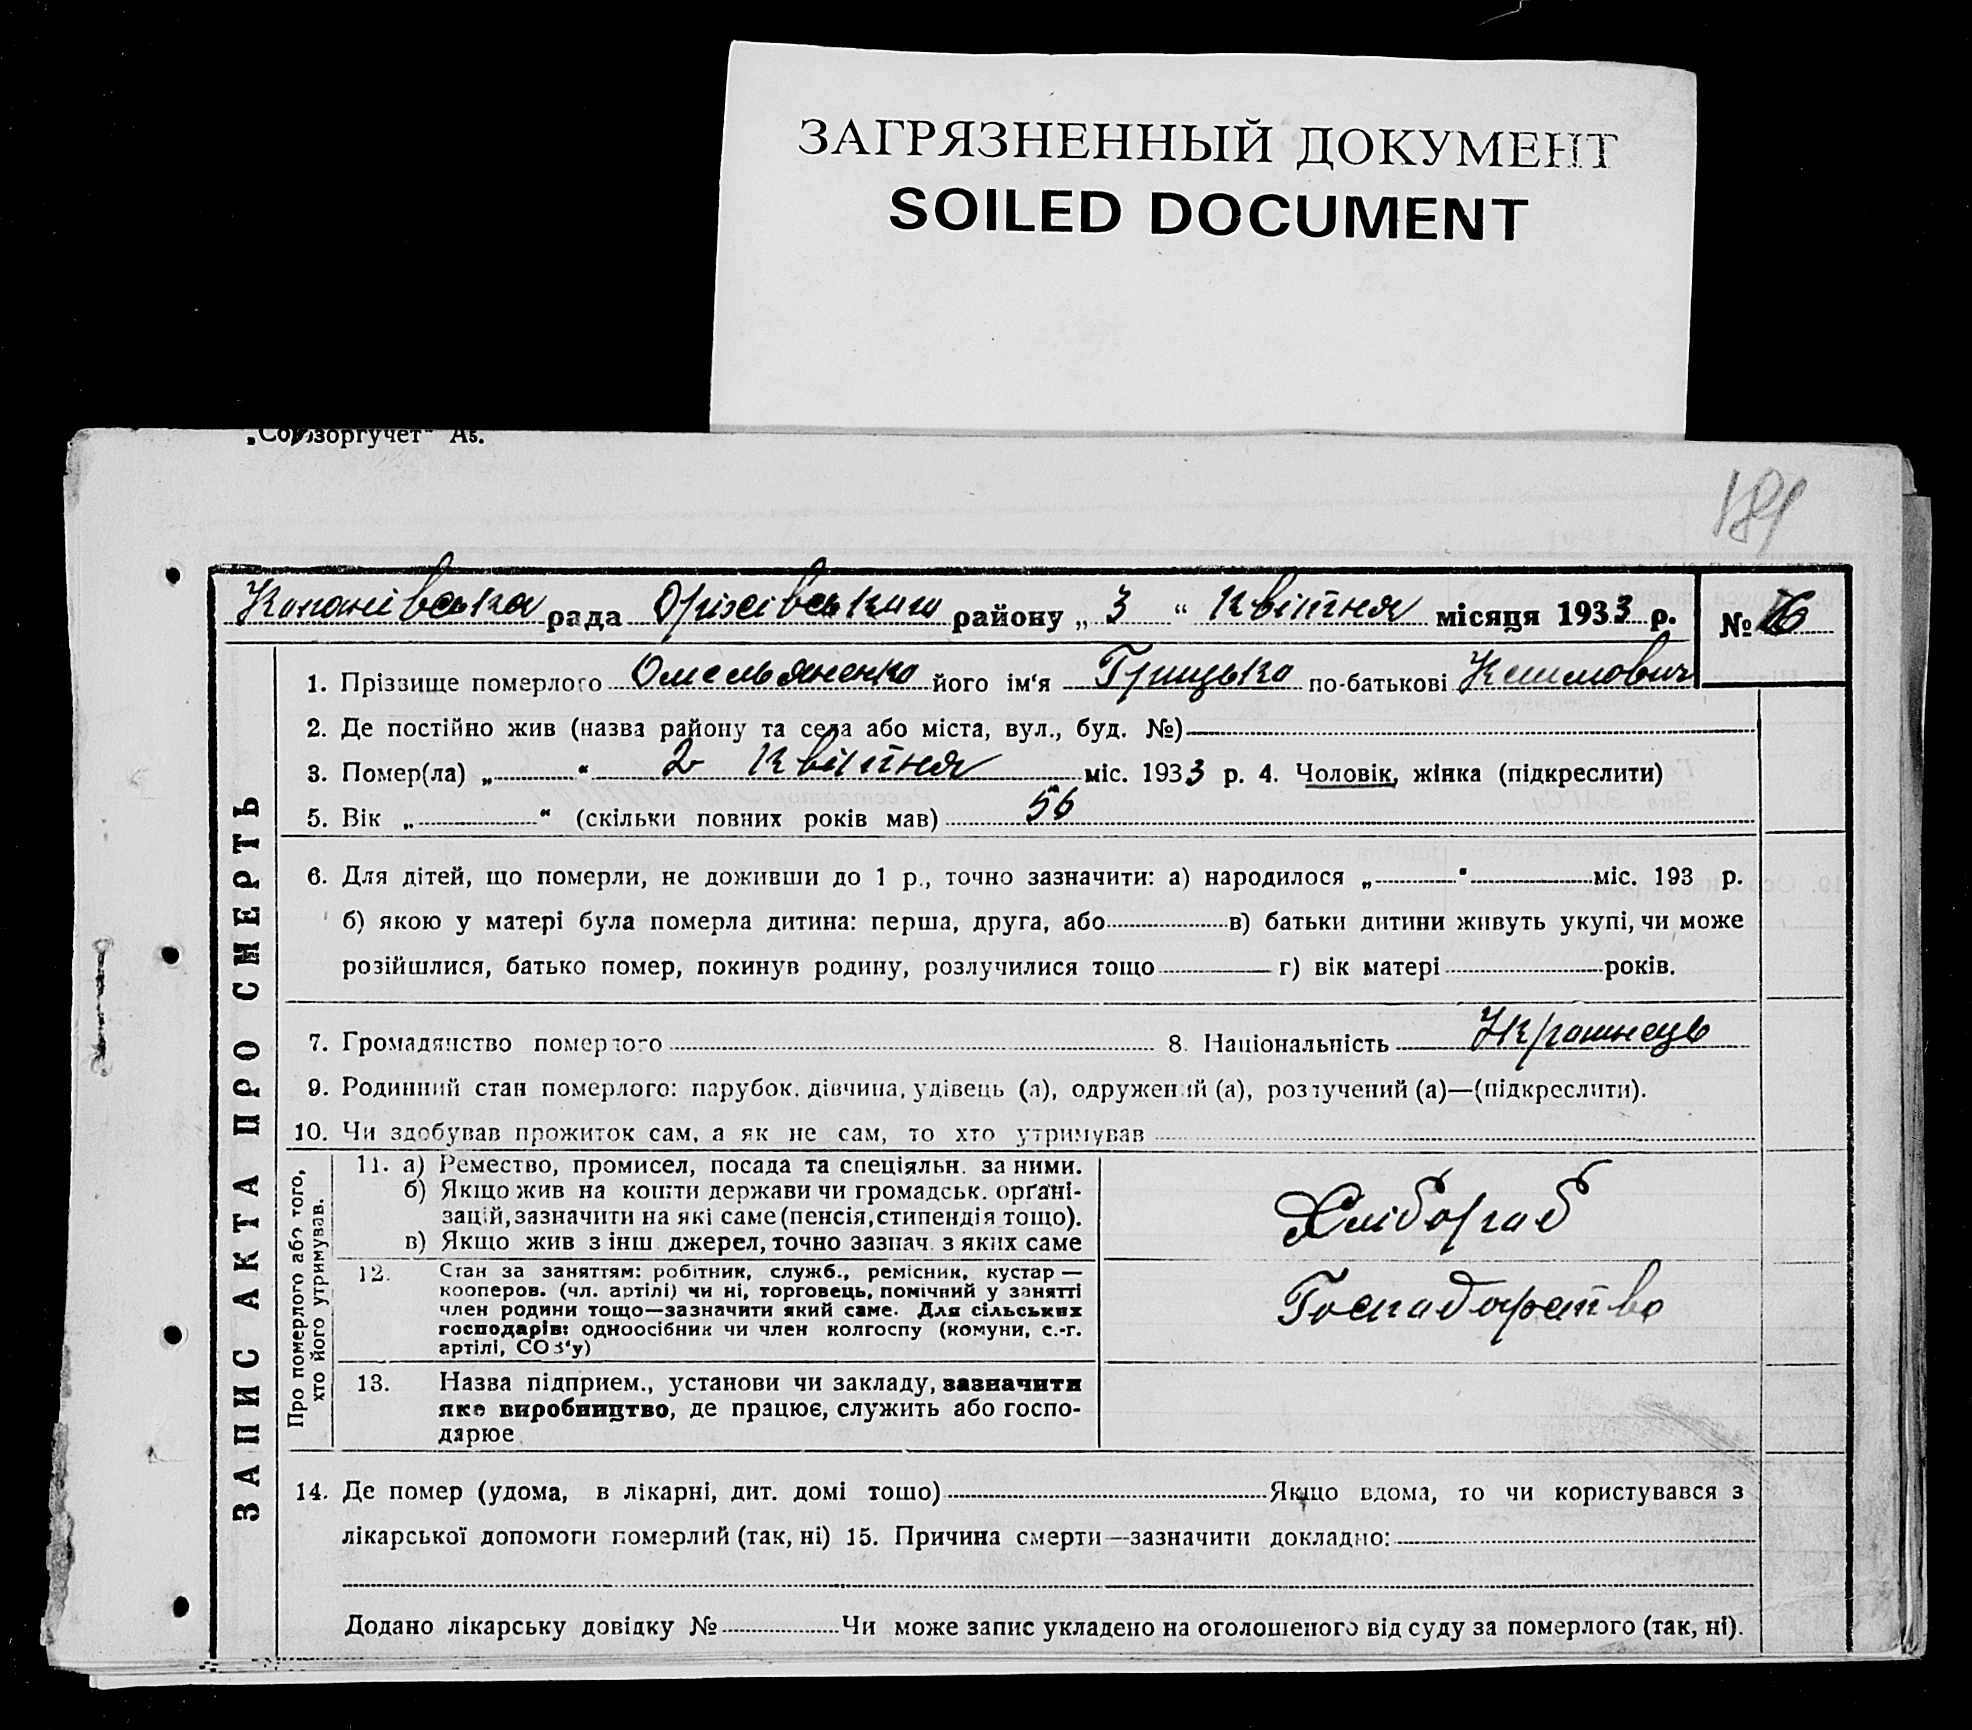 ЗАГРЯЗНЕННЫЙ ДОКУМЕНТ
SOILED DOCUMENT
„Союзоргучет“ А5.
191
Копанівська рада Оріхівського району „ 3 “ Квітня місяця 1933 р. №
1. Прізвище померлого Омельяненко його ім‘я Грицько по-батькові Климович
2. Де постійно жив (назва району та села або міста, вул., буд. №)
3. Помер(ла) „ “ 2 Квітня міс. 1933 р. 4. Чоловік, жінка (підкреслити)
5. Вік „ “ (скільки повних років мав) 56
6. Для дітей, що померли, не доживши до 1 р., точно зазначити: а) народилося „ “ міс. 193 р.
б) якою у матері була померла дитина: перша, друга, або в) батьки дитини живуть укупі, чи може
розійшлися, батько помер, покинув родину, розлучилися тощо г) вік матері років.
7. Громадянство померлого 8. Національність Українець
9. Родинний стан померлого: парубок, дівчина, удівець (а), одружений (а), розлучений (а)—(підкреслити).
10. Чи здобував прожиток сам, а як не сам, то хто утримував
ЗАПИС АКТА ПРО СМЕРТЬ
Про померлого або того,
хто його утримував.
11. а) Ремество, промисел, посада та спеціяльн. за ними.
б) Якщо жив на кошти держави чи громадськ. орґані-
зацій, зазначити на які саме (пенсія, стипендія тощо).
в) Якщо жив з інш джерел, точно зазнач. з яких саме
Хлібороб
12. Стан за заняттям: робітник, служб., ремісник, кустар —
кооперов. (чл. артілі) чи ні, торговець, помічний у занятті
член родини тощо—зазначити який саме. Для сільських
господарів: одноосібник чи член колгоспу (комуни, с.-г.
артілі, СОЗ‘у)
Господарство
13. Назва підприєм., установи чи закладу, зазначити
яке виробництво, де працює, служить або госпо-
дарює
14. Де помер (удома, в лікарні, дит. домі тощо) Якщо вдома, то чи користувався з
лікарської допомоги померлий (так, ні) 15. Причина смерти—зазначити докладно:
Додано лікарську довідку № Чи може запис укладено на оголошеного від суду за померлого (так, ні).